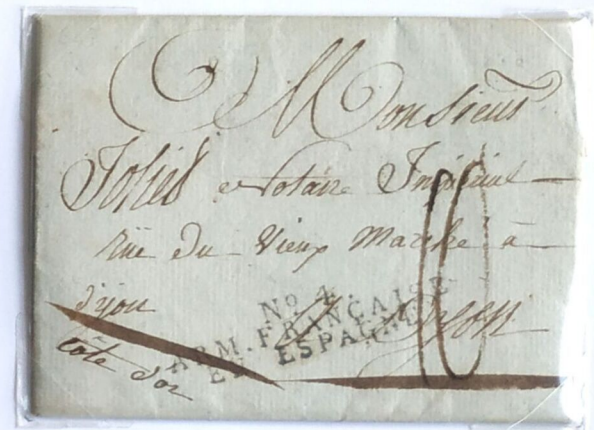 Monsieur
Joliet Notaire Impérial
rue du Vieux Marché à
dijon Dijon
côte d'or
No 4.
ARM. FRANÇAISE
EN ESPAGNE